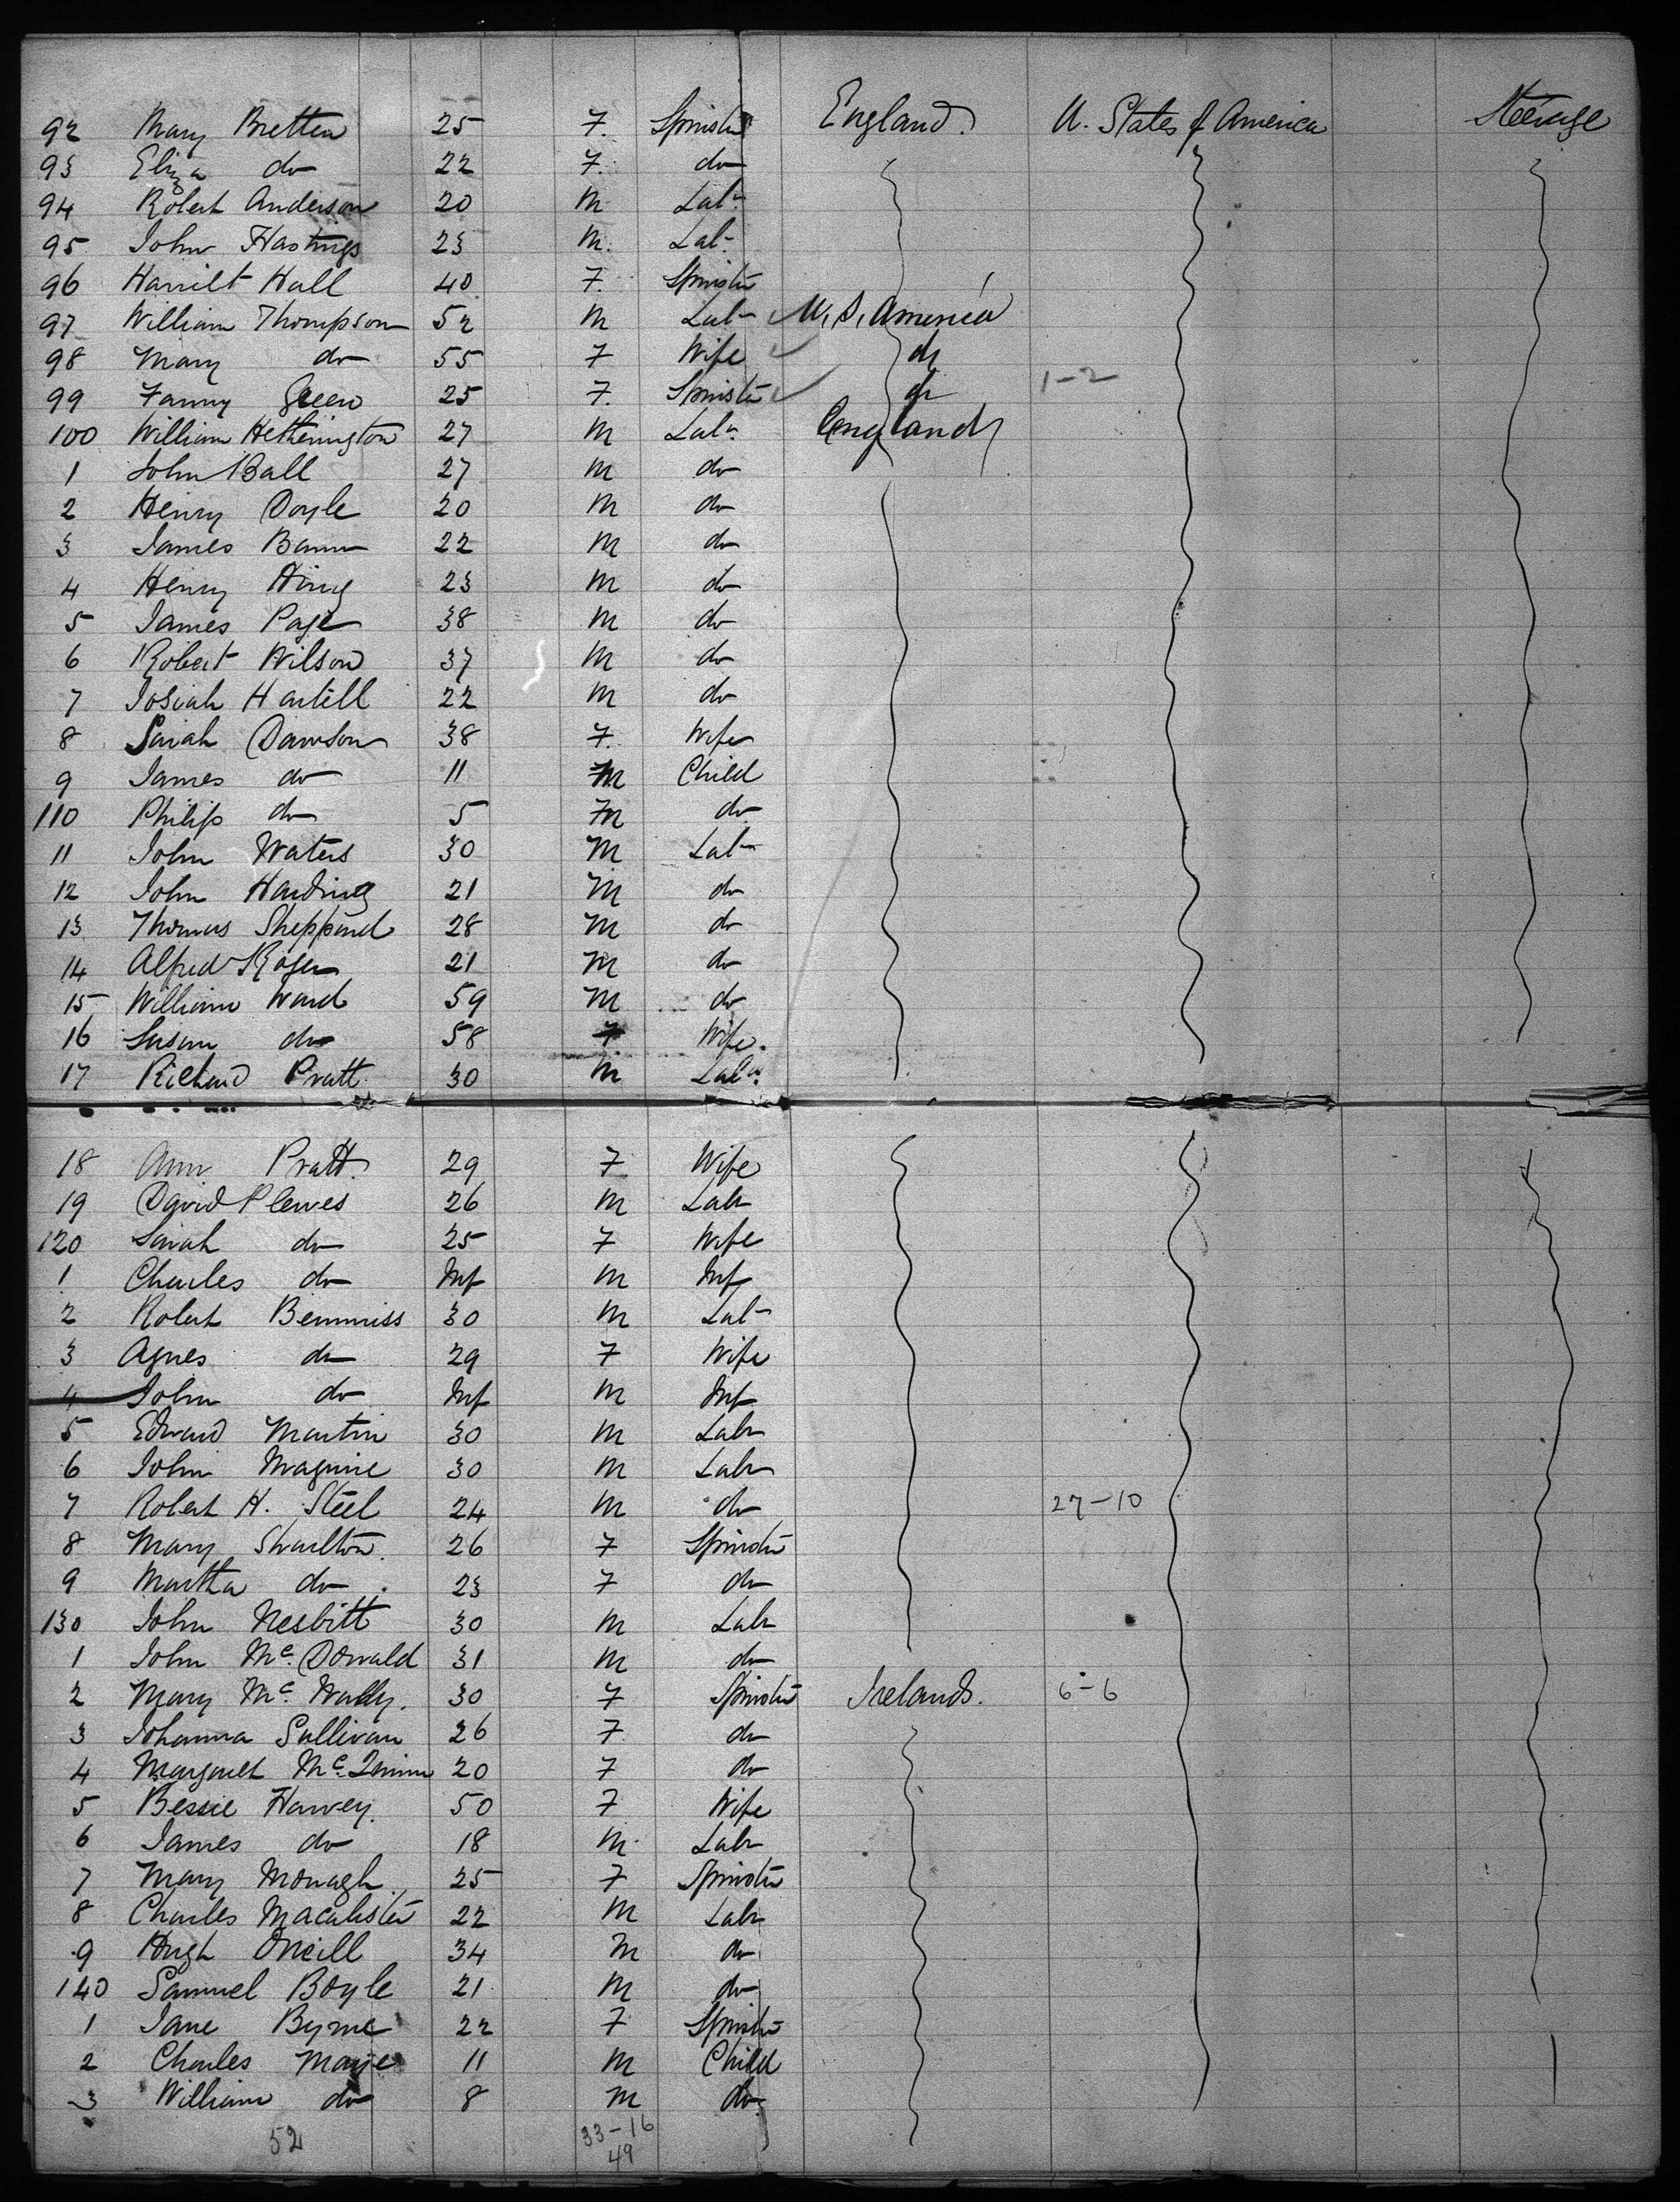 92 Mary Bretten 25 F. Spinstr England. U. States of America Steerage
93 Eliza do 22 F. do
94 Robert Anderson 20 M Labr
95 John Hastings 23 M. Labr
96 Harriet Hall 40 F. Spinstr
97 William Thompson 52 M Labr U.S. America
98 Mary do 55 F Wife do
99 Fanny Green 25 F. Spinstr do 1-2
100 William Hetherington 27 M Labr England
1 John Ball 27 M do
2 Henry Doyle 20 M do
3 James 22 M do
4 Henry 23 M do
5 James Page 38 M do
6 Robert Wilson 37 M do
7 Josiah Hartill 22 M do
8 Sarah Dawson 38 F. Wife
9 James do 11 M Child
110 Philip do 5 M do
11 John Waters 30 M Labr
12 John Harding 21 M do
13 Thomas Sheppard 28 M do
14 Alfred Roger 21 M do
15 William Ward 59 M do
16 Susan do 58 F Wife.
17 Richard Pratt 30 M Labr
18 Ann Pratt. 29 F Wife
19 David Plewes 26 M Labr
120 Sarah do 25 F Wife
1 Charles do Inf M Inf
2 Robert Bemmiss 30 M Labr
3 Agnes do 29 F Wife
4 John do Inf M Inf
5 Edward Martin 30 M Labr
6 John Maguire 30 M Labr
7 Robert H. Steel 24 M do 27-10
8 Mary 26 F Spinstr
9 Martha do 23 F do
130 John Nesbitt 30 M Labr
1 John Mc. Donald 31 M do
2 Mary Mc. Nally. 30 F Spinstr Ireland. 6-6
3 Johanna Sullivan 26 F do
4 Margaret Mc. Quinn 20 F do
5 Bessie Harvey. 50 F Wife
6 James do 18 M. Labr
7 Mary Monagh 25 F Spinstr
8 Charles Macalister 22 M Labr
9 Hugh ONeill 34 M do
140 Samuel Boyle 21 M do
1 Jane Byrne 22 F Spinstr
2 Charles 11 M Child
3 William do 8 M do
52 33-16
49